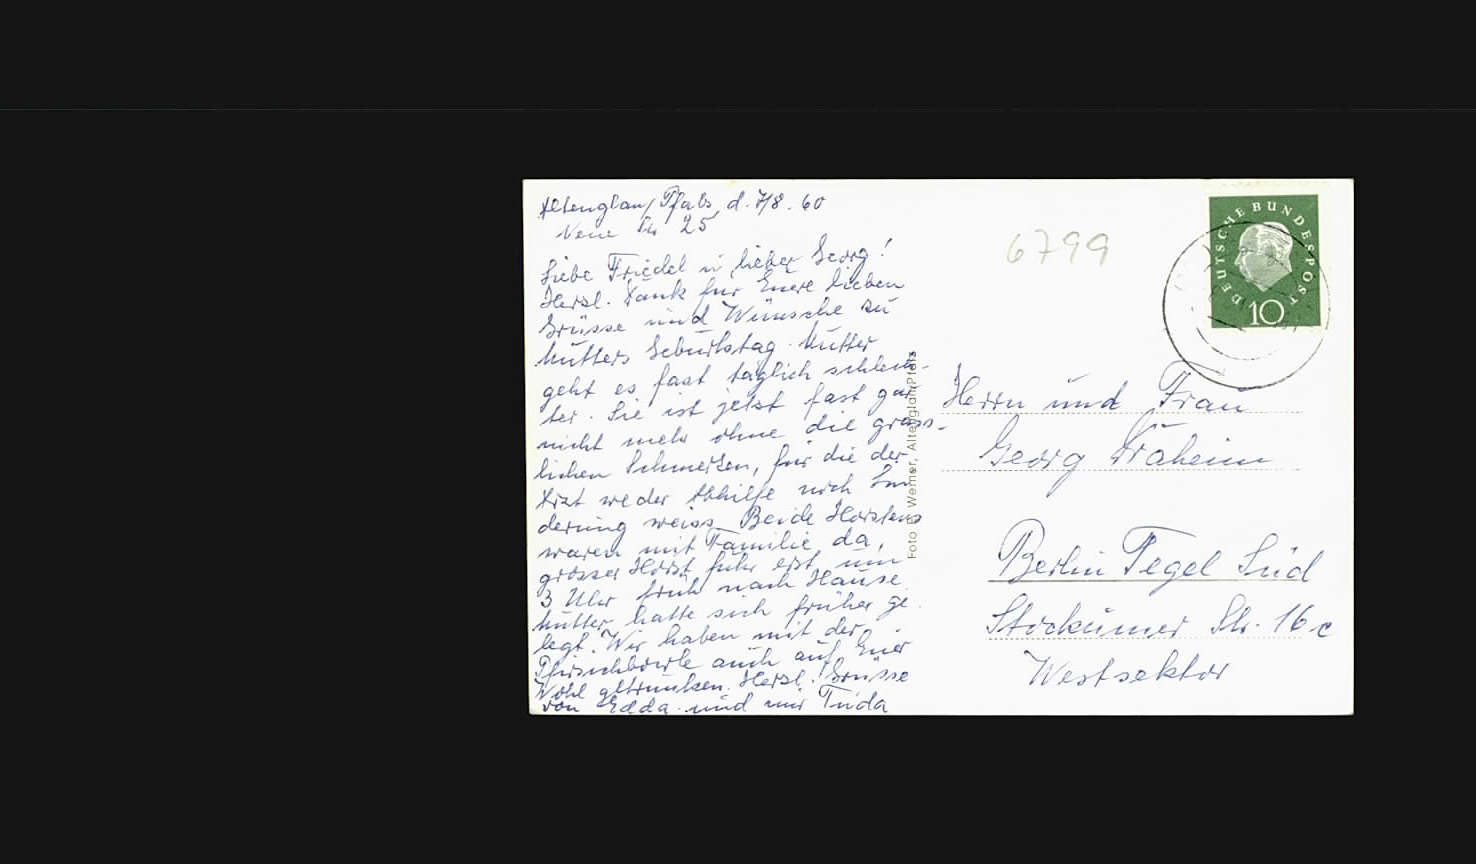 Altenglan/Pfalz, d. 7/8. 60
Neue Str 25
Liebe Friedel u lieber Georg!
Herzl. Dank für Euere lieben
Grüsse und Wünsche zu
Mutters Geburtstag. Mutter
geht es fast täglich schlech-
ter. Sie ist jetzt fast gar
nicht mehr ohne die gräss-
lichen Schmerzen, für die der
Arzt weder Abhilfe noch Lin
derung weiss. Beide Horstens
waren mit Familie da,
grosser Horst fuhr erst um
3 Uhr früh nach Hause.
Mutter hatte sich früher ge
legt. Wir haben mit der
Pfirsichbowle auch auf Euer
Wohl getrunken. Herzl. Grüsse
von Edda und mir Trida
Foto Werner, Altenglan/Pfalz
6799
DEUTSCHE BUNDESPOST
10
Herrn und Frau
Georg Draheim
Berlin Tegel Süd
Stockumer Str. 16 c
Westsektor